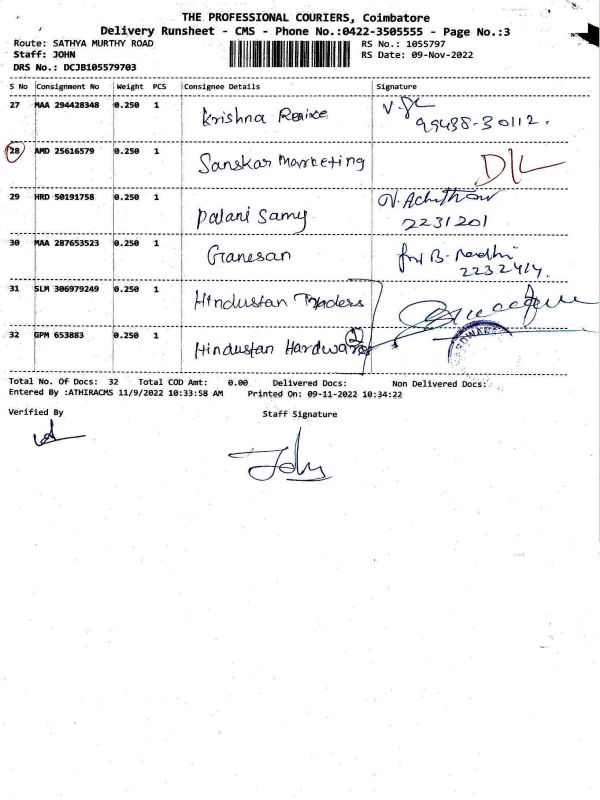 THE PROFESSIONAL COURIERS, Coimbatore
Delivery Runsheet - CMS - Phone No.:0422-3505555 - Page No.:3
Route: SATHYA MURTHY ROAD RS No.: 1055797
Staff: JOHN RS Date: 09-Nov-2022
DRS No.: DCJB105579703
S No Consignment No Weight PCS Consignee Details Signature
27 MAA 294428348 0.250 1 Krishna
99438-30112.
28 AMD 25616579 0.250 1 Sanskar Marketing D/L
29 HRD 50191758 0.250 1 Palani Samy
2231201
30 MAA 287653523 0.250 1 Ganesan
2232414.
31 SLM 306979249 0.250 1 Hindustan Traders
32 GPM 653883 0.250 1 Hindustan Hardwares
Total No. Of Docs: 32 Total COD Amt: 0.00 Delivered Docs: Non Delivered Docs:
Entered By :ATHIRACMS 11/9/2022 10:33:58 AM Printed On: 09-11-2022 10:34:22
Verified By Staff Signature